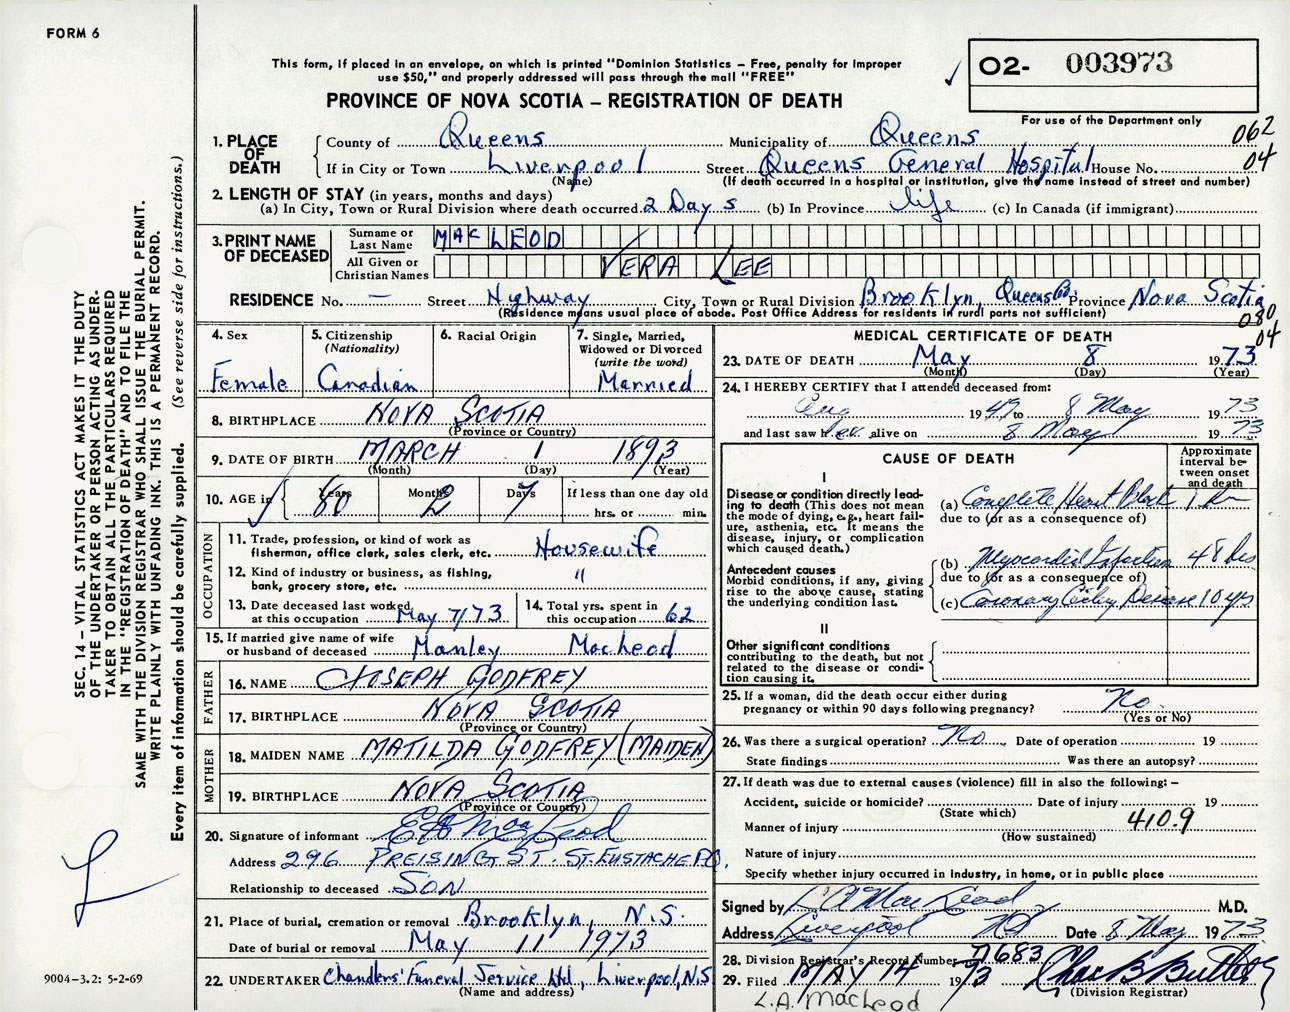 FORM 6
This form, if placed in an envelope, on which is printed "Dominion Statistics – Free, penalty for improper
use $50," and properly addressed will pass through the mail "FREE"
PROVINCE OF NOVA SCOTIA – REGISTRATION OF DEATH
✓ O2- 003973
For use of the Department only
062
04
1. PLACE OF DEATH County of Queens Municipality of Queens
If in City or Town Liverpool Street Queens General Hospital House No.
(Name) (If death occurred in a hospital or institution, give the name instead of street and number)
2. LENGTH OF STAY (in years, months and days)
(a) In City, Town or Rural Division where death occurred 2 Days (b) In Province life (c) In Canada (if immigrant)
3. PRINT NAME OF DECEASED
Surname or Last Name MACLEOD
All Given or Christian Names VERA LEE
RESIDENCE No. — Street Highway City, Town or Rural Division Brooklyn, Queens Co. Province Nova Scotia
(Residence means usual place of abode. Post Office Address for residents in rural parts not sufficient)
080
04
4. Sex Female
5. Citizenship (Nationality) Canadian
6. Racial Origin
7. Single, Married, Widowed or Divorced (write the word) Married
8. BIRTHPLACE NOVA SCOTIA
(Province or Country)
9. DATE OF BIRTH MARCH 1 1893
(Month) (Day) (Year)
10. AGE in Years 80 Months 2 Days 7 If less than one day old
hrs. or min.
OCCUPATION
11. Trade, profession, or kind of work as
fisherman, office clerk, sales clerk, etc. Housewife
12. Kind of industry or business, as fishing,
bank, grocery store, etc. "
13. Date deceased last worked
at this occupation May 7/73
14. Total yrs. spent in
this occupation 62
15. If married give name of wife
or husband of deceased Manley MacLeod
FATHER
16. NAME JOSEPH GODFREY
17. BIRTHPLACE NOVA SCOTIA
(Province or Country)
MOTHER
18. MAIDEN NAME MATILDA GODFREY (MAIDEN)
19. BIRTHPLACE NOVA SCOTIA
(Province or Country)
20. Signature of informant MacLeod
Address 296 PREISING ST. ST. EUSTACHE P.Q.
Relationship to deceased SON
21. Place of burial, cremation or removal Brooklyn, N.S.
Date of burial or removal May 11 1973
22. UNDERTAKER Chandlers' Funeral Service Ltd., Liverpool, N.S.
(Name and address)
MEDICAL CERTIFICATE OF DEATH
23. DATE OF DEATH May 8 1973
(Month) (Day) (Year)
24. I HEREBY CERTIFY that I attended deceased from:
Aug 1947 to 8 May 1973
and last saw her alive on 8 May 1973
CAUSE OF DEATH
Approximate interval between onset and death
I
Disease or condition directly lead-
ing to death (This does not mean
the mode of dying, e.g., heart fail-
ure, asthenia, etc. It means the
disease, injury, or complication
which caused death.)
(a) Complete Heart Block
due to (or as a consequence of)
Antecedent causes
Morbid conditions, if any, giving
rise to the above cause, stating
the underlying condition last.
(b) Myocardial Infarction 48 hrs
due to (or as a consequence of)
(c) Coronary Artery Disease 10 yrs
II
Other significant conditions
contributing to the death, but not
related to the disease or condi-
tion causing it.
25. If a woman, did the death occur either during
pregnancy or within 90 days following pregnancy? No.
(Yes or No)
26. Was there a surgical operation? No Date of operation 19
State findings Was there an autopsy?
27. If death was due to external causes (violence) fill in also the following: –
Accident, suicide or homicide? Date of injury 19
(State which)
Manner of injury 410.9
(How sustained)
Nature of injury
Specify whether injury occurred in industry, in home, or in public place
Signed by L.A. MacLeod M.D.
Address Liverpool NS Date 8 May 1973
28. Division Registrar's Record Number 7683
29. Filed MAY 14 1973
(Division Registrar)
L.A. MacLeod
SEC. 14 – VITAL STATISTICS ACT MAKES IT THE DUTY
OF THE UNDERTAKER OR PERSON ACTING AS UNDER-
TAKER TO OBTAIN ALL THE PARTICULARS REQUIRED
IN THE "REGISTRATION OF DEATH" AND TO FILE THE
SAME WITH THE DIVISION REGISTRAR WHO SHALL ISSUE THE BURIAL PERMIT.
WRITE PLAINLY WITH UNFADING INK. THIS IS A PERMANENT RECORD.
Every item of information should be carefully supplied. (See reverse side for instructions.)
9004–3.2: 5-2-69